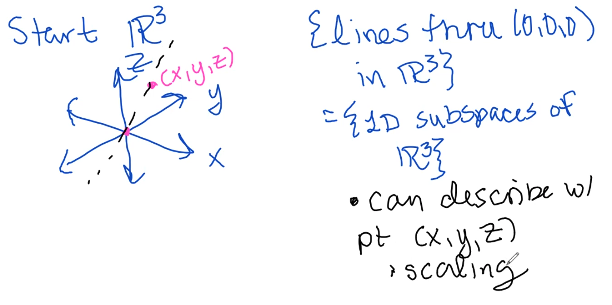 Start ℝ³
z
(x,y,z)
y
x
{lines thru (0,0,0)
in ℝ³}
={1D subspaces of
ℝ³}
• can describe w/
pt (x,y,z)
, scaling